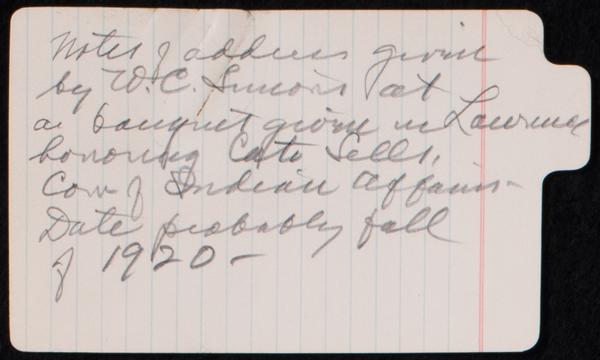 Notes of address given
by W.C. Simons at
a banquet given in Lawrence
honoring Cato Sells,
Com of Indian Affairs -
Date probably fall
of 1920 -